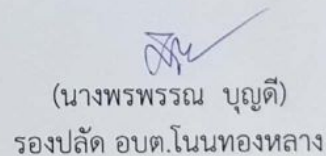 (นางพรพรรณ บุญดี)
รองปลัด อบต.โนนทองหลาง